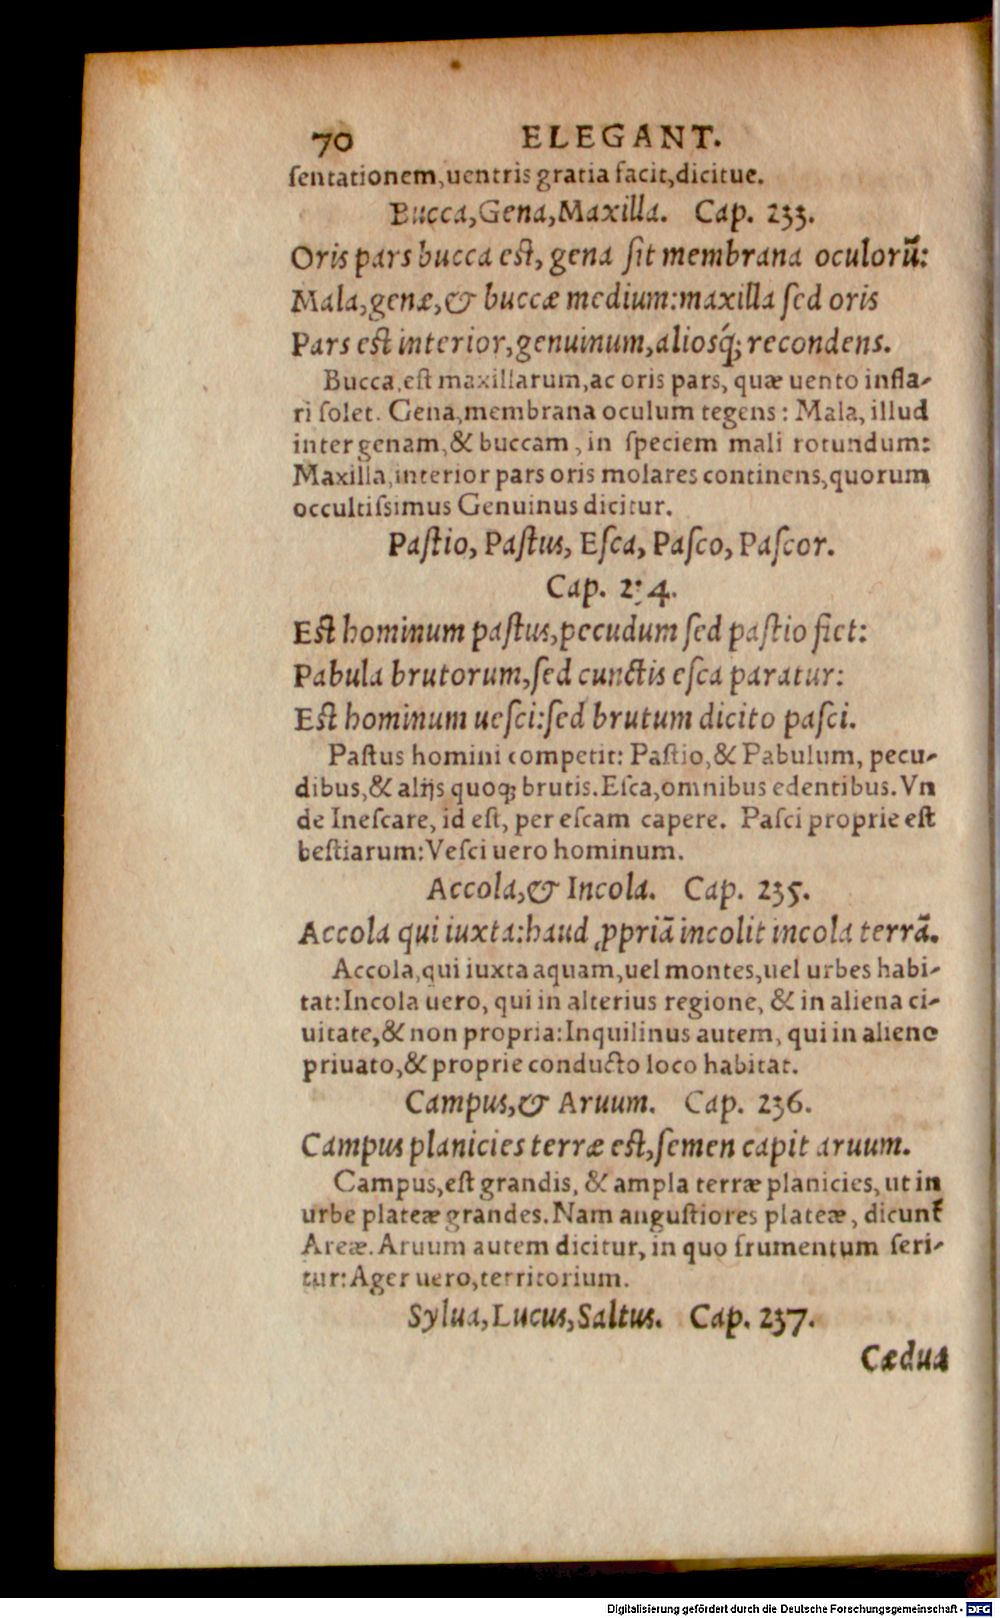 70 ELEGANT.
ſentationem,uentris gratia facit,dicitue.
Bucca,Gena,Maxilla. Cap. 233.
Oris pars bucca eſt, gena ſit membrana oculorũ:
Mala,genæ,& buccæ medium:maxilla ſed oris
Pars eſt interior,genuinum,aliosq́; recondens.
Bucca,eſt maxillarum,ac oris pars, quæ uento infla-
ri ſolet. Gena,membrana oculum tegens: Mala, illud
inter genam,& buccam, in ſpeciem mali rotundum:
Maxilla,interior pars oris molares continens,quorum
occultiſsimus Genuinus dicitur.
Paſtio, Paſtus, Eſca, Paſco, Paſcor.
Cap. 2:4.
Eſt hominum paſtus,pecudum ſed paſtio fiet:
Pabula brutorum,ſed cunctis eſca paratur:
Eſt hominum ueſci:ſed brutum dicito paſci.
Paſtus homini competit: Paſtio,& Pabulum, pecu-
dibus,& alijs quoq; brutis.Eſca,omnibus edentibus.Vn
de Ineſcare, id eſt, per eſcam capere. Paſci proprie eſt
beſtiarum:Veſci uero hominum.
Accola,& Incola. Cap. 235.
Accola qui iuxta:haud ꝓpriã incolit incola terrã.
Accola,qui iuxta aquam,uel montes,uel urbes habi-
tat:Incola uero, qui in alterius regione, & in aliena ci-
uitate,& non propria:Inquilinus autem, qui in alieno
priuato,& proprie conducto loco habitat.
Campus,& Aruum. Cap. 236.
Campus planicies terræ eſt,ſemen capit aruum.
Campus,eſt grandis, & ampla terræ planicies, ut in
urbe plateæ grandes.Nam anguſtiores plateæ, dicunt᷑
Areæ. Aruum autem dicitur, in quo frumentum ſeri-
tur:Ager uero,territorium.
Sylua,Lucus,Saltus. Cap. 237.
Cædua
Digitalisierung gefördert durch die Deutsche Forschungsgemeinschaft - DFG